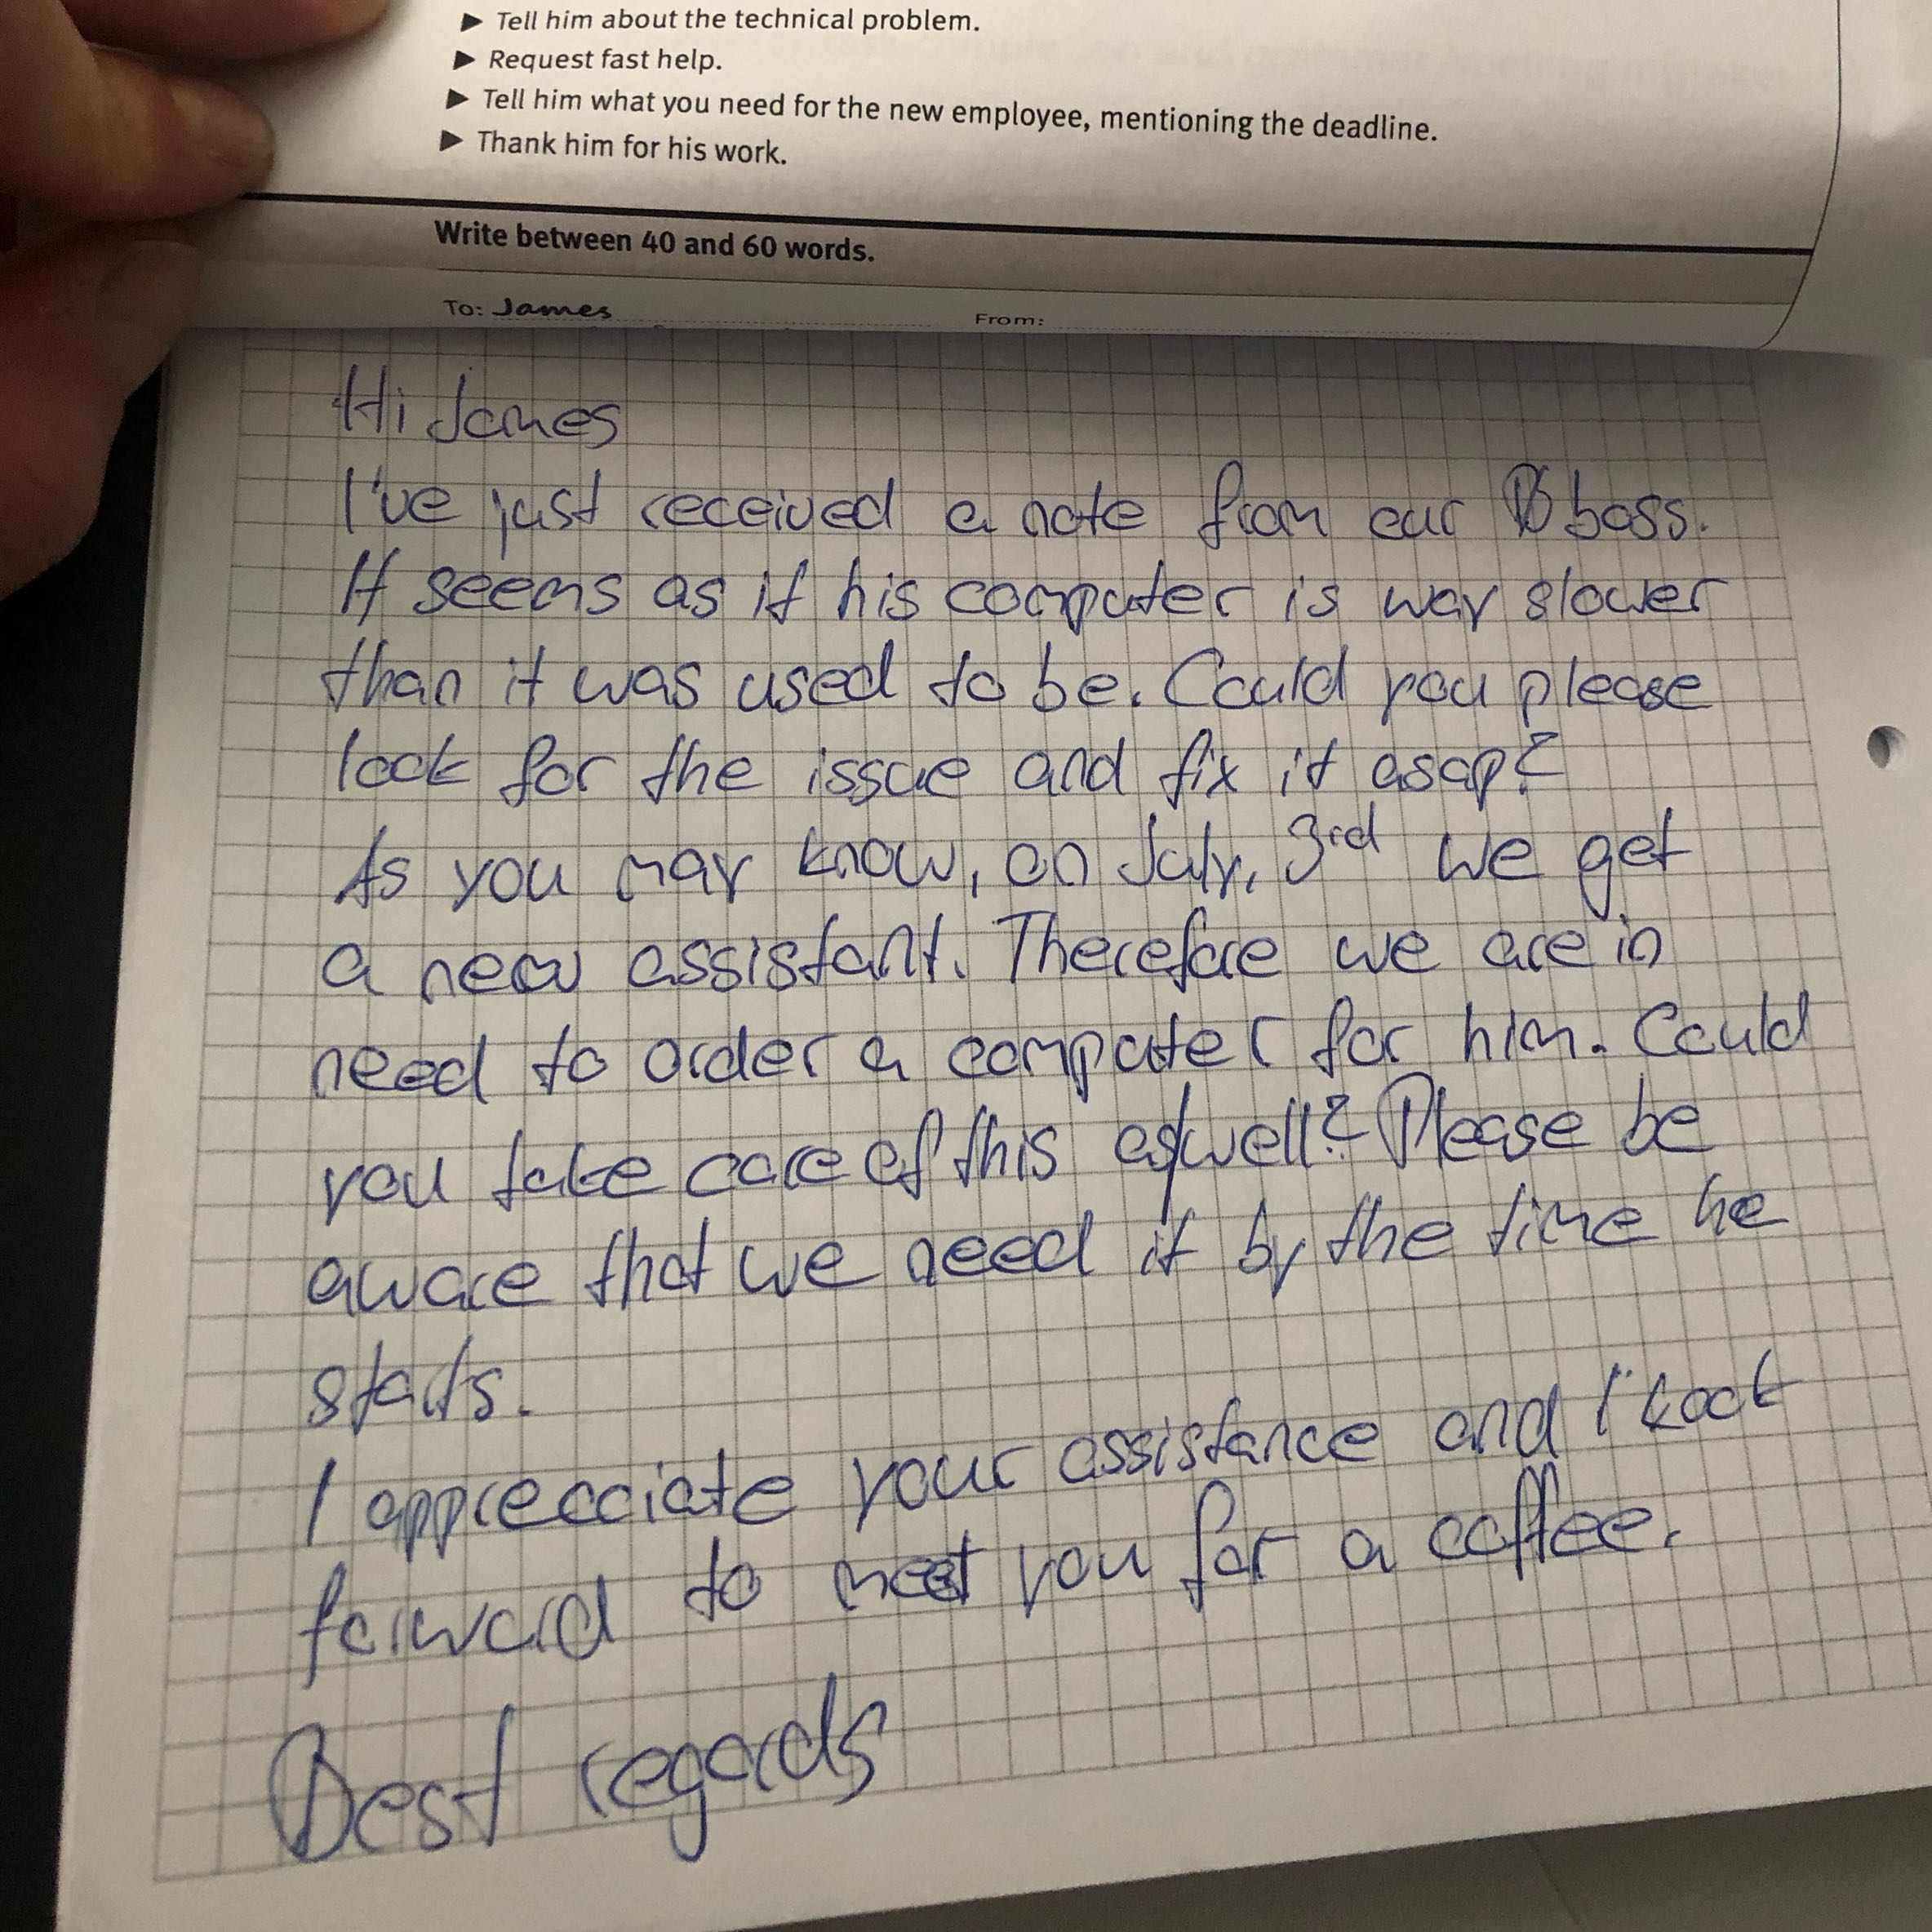 ▶ Tell him about the technical problem.
▶ Request fast help.
▶ Tell him what you need for the new employee, mentioning the deadline.
▶ Thank him for his work.
Write between 40 and 60 words.
To: James From:
Hi James
I've just received a note from our boss.
It seems as if his computer is way slower
than it was used to be. Could you please
look for the issue and fix it asap?
As you may know, on July, 3rd we get
a new assistant. Therefore we are in
need to order a computer for him. Could
you take care of this as|well? Please be
aware that we need it by the time he
starts.
I apprecciate your assistance and I look
forward to meet you for a coffee.
Best regards